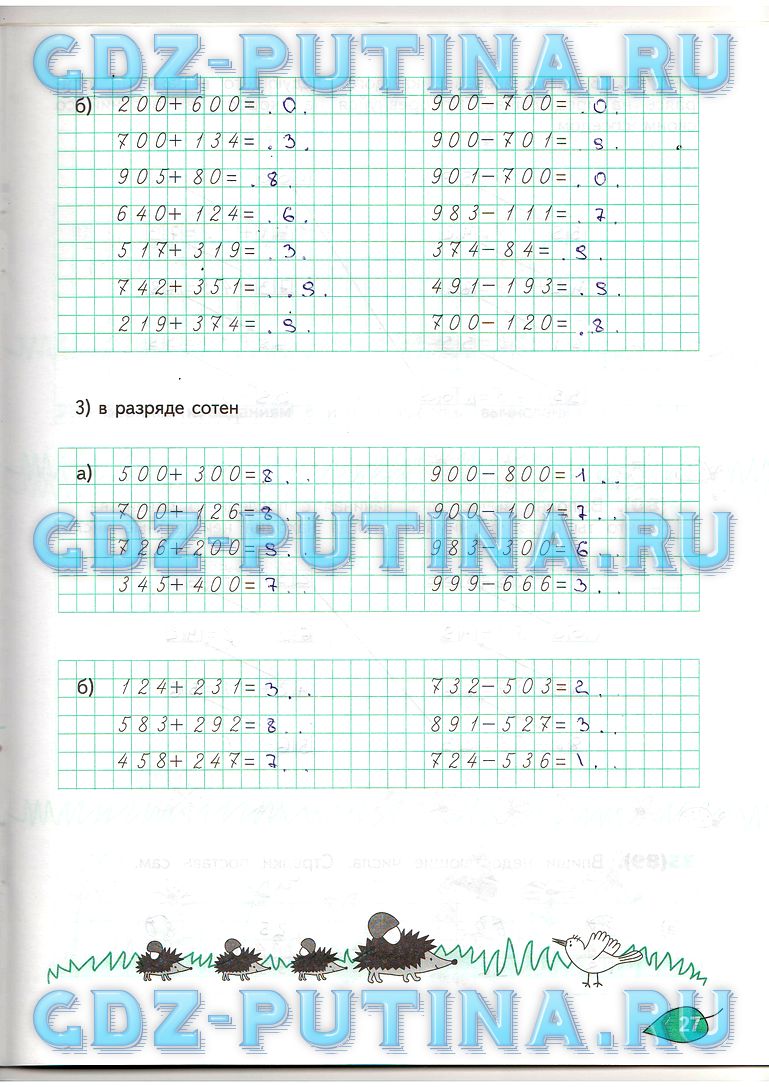 GDZ-PUTINA.RU
б) 200+600= .0. 900-700= .0.
700+134= .3. 900-701= .9.
905+80= .8. 901-700= .0.
640+124= .6. 983-111= .7.
517+319= .3. 374-84= .9.
742+351= . .9. 491-193= .9.
219+374= .9. 700-120= .8.
3) в разряде сотен
а) 500+300=8 . . 900-800=1 . .
700+126=8 . . 900-101=7 . .
GDZ-PUTINA.RU
726+200=9 . . 983-300=6 . .
345+400=7 . . 999-666=3 . .
б) 124+231=3 . . 732-503=2 .
583+292=8 . . 891-527=3 . .
458+247=7 . . 724-536=1 . .
GDZ-PUTINA.RU
27